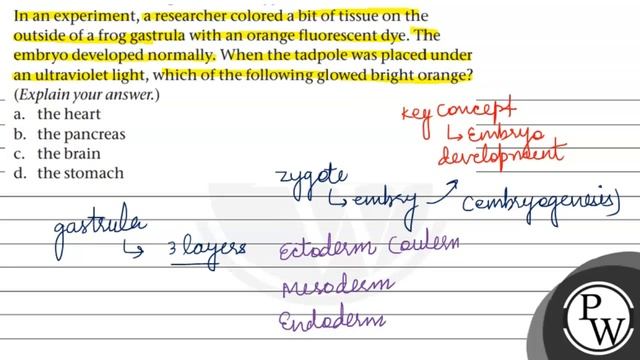 In an experiment, a researcher colored a bit of tissue on the
outside of a frog gastrula with an orange fluorescent dye. The
embryo developed normally. When the tadpole was placed under
an ultraviolet light, which of the following glowed bright orange?
(Explain your answer.)
a. the heart
b. the pancreas
c. the brain
d. the stomach
Key concept
↳ Embryo
development
zygote
↳ embry → (embryogenesis)
gastrula
↳ 3 layers
Ectoderm
Mesoderm
Endoderm
PW